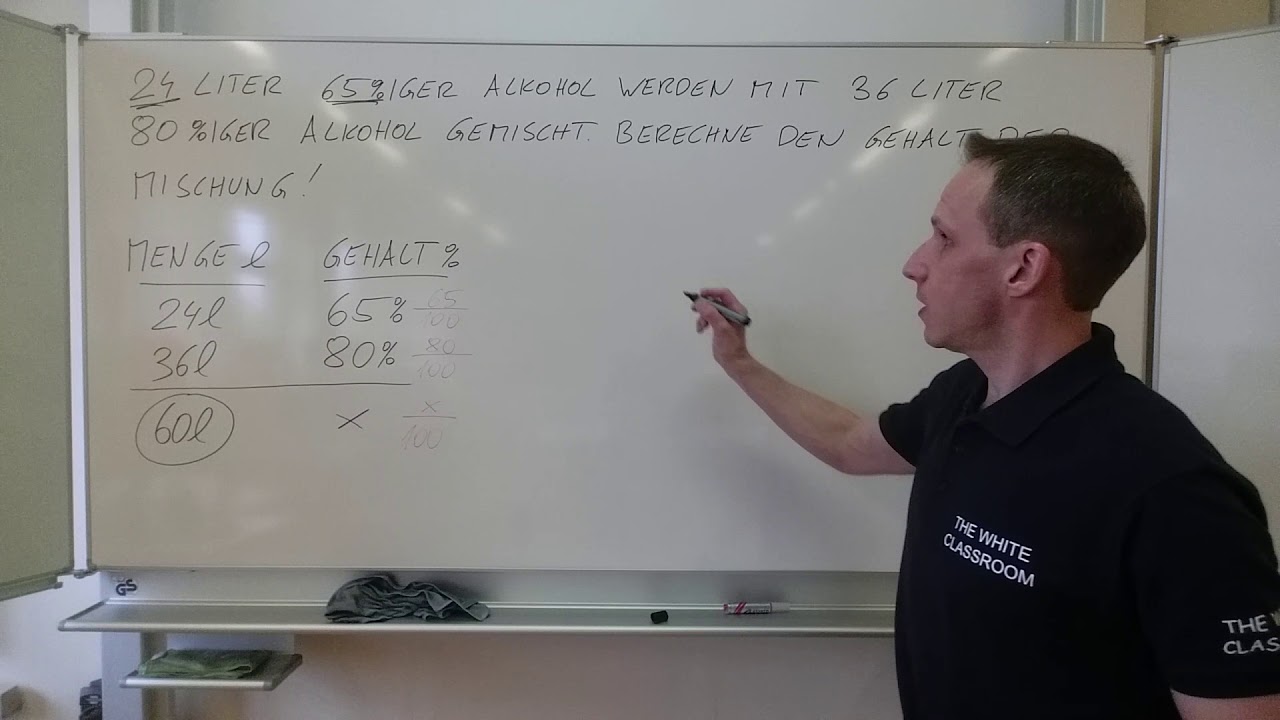 24 LITER 65%IGER ALKOHOL WERDEN MIT 36 LITER
80%IGER ALKOHOL GEMISCHT. BERECHNE DEN GEHALT DER
MISCHUNG!
MENGE l GEHALT %
24l 65% 65/100
36l 80% 80/100
60l x x/100
THE WHITE
CLASSROOM
THE
CLAS
GS